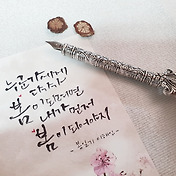 누군가에게
다가가
봄이 되려면
내가 먼저
봄이 되어야지